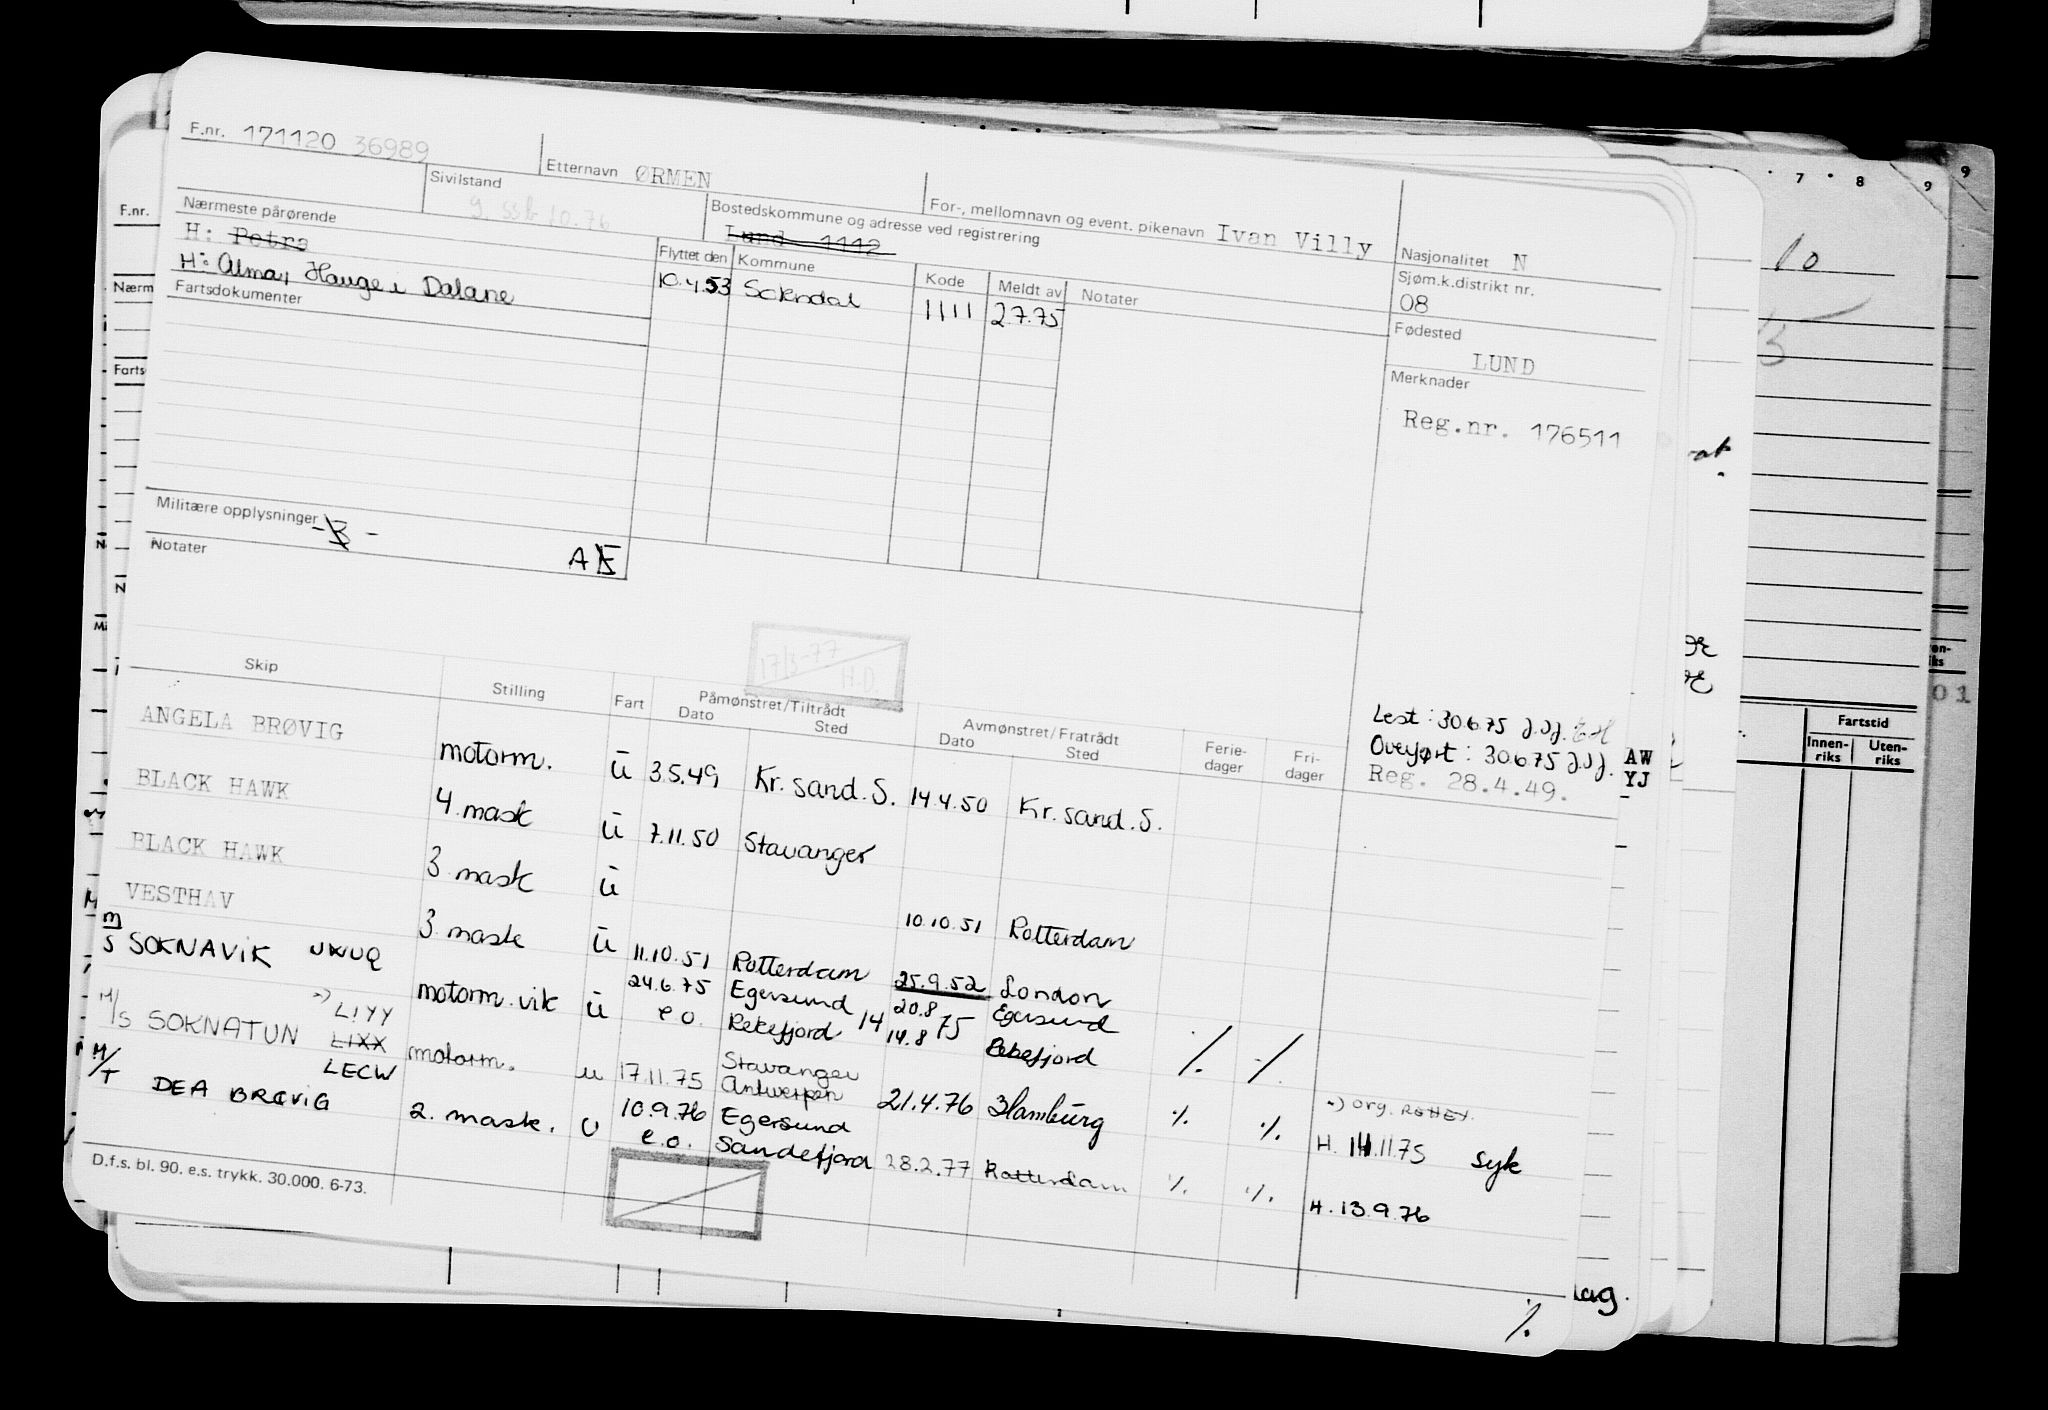 F.nr. 171120 36989
Etternavn ØRMEN
For-, mellomnavn og event. pikenavn Ivan Villy
Nasjonalitet N
Sivilstand
g. ssb 10.76
Bostedskommune og adresse ved registrering
Lund 1112
Sjøm.k.distrikt nr.
08
Nærmeste pårørende
H: Petra
H: Alma, Hauge i Dalane
Flyttet den Kommune Kode Meldt av Notater
10.4.53 Sokndal 1111 2.7.75
Fødested
LUND
Fartsdokumenter
Merknader
Reg.nr. 176511
Militære opplysninger
Notater
17/3-77
H.D.
Lest: 30.6.75
Overført: 30.6.75
Reg. 28.4.49.
Skip Stilling Fart Påmønstret/Tiltrådt Avmønstret/Fratrådt Ferie-dager Fri-dager
Dato Sted Dato Sted
ANGELA BRØVIG motorm. u 3.5.49 Kr.sand.S. 14.4.50 Kr.sand.S.
BLACK HAWK 4.mask u 7.11.50 Stavanger
BLACK HAWK 3.mask u 10.10.51 Rotterdam
VESTHAV 3.mask u 11.10.51 Rotterdam 25.9.52 London
M/S SOKNAVIK motorm.vik u 24.6.75 Egersund 20.8 Egersund
e.o. Rekefjord 14 14.8 75 Rekefjord ⁒ ⁒
LIYY
M/S SOKNATUN LIXX motorm. u 17.11.75 Stavanger
LECW Antwerpen 21.4.76 Hamburg ⁒ ⁒ H. 14.11.75 syk
M/T DEA BRØVIG 2. mask. u 10.9.76 Egersund
e.o. Sandefjord 28.2.77 Rotterdam ⁒ ⁒ H. 13.9.76
D.f.s. bl. 90. e.s. trykk. 30.000. 6-73.
⁒
F.nr.
Nærm
Farts
7 8 9 9
10
AW
YJ
Fartstid
Innen-riks Uten-riks
01